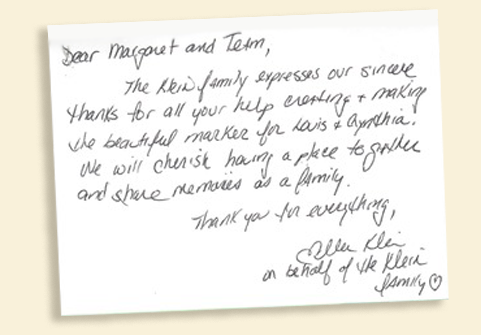 Dear Margaret and Team,
The Klein family expresses our sincere
thanks for all your help creating + making
the beautiful marker for Lois + Cynthia.
We will cherish having a place to gather
and share memories as a family.
Thank you for everything,
Ellen Klein
on behalf of the Klein
family♡